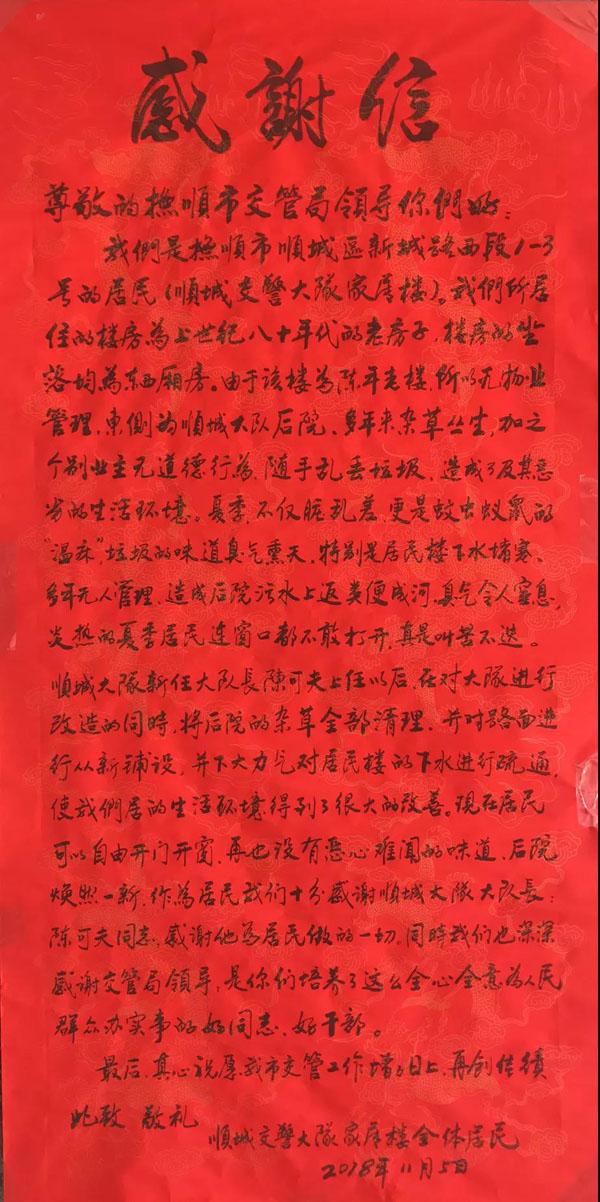 感謝信
尊敬的撫順市交管局領导你們好:
我們是撫順市順城區新城路西段1-3
号的居民(順城交警大隊家属楼)。我們所居
住的楼房為上世紀八十年代的老房子,楼房的坐
落均為东西厢房。由于该楼為陈年老楼,所以无物业
管理,東側為順城大队后院、多年来杂草丛生,加之
个别业主无道德行為,随手乱丢垃圾,造成了及其恶
劣的生活环境。夏季,不仅脏乱差,更是蚊虫蚁鼠的
“温床”,垃圾的味道臭气熏天,特别是居民楼下水堵塞、
多年无人管理,造成后院污水上返粪便成河,臭气令人窒息,
炎热的夏季居民连窗口都不敢打开,真是叫苦不迭。
順城大隊新任大队長陳可夫上任以后,在对大隊進行
改造的同時,将后院的杂草全部清理,并对路面進
行从新铺设,并下大力气对居民楼的下水進行疏通,
使我們居的生活环境得到了很大的改善。現在居民
可以自由开门开窗,再也没有恶心难闻的味道,后院
焕然一新,作為居民我们十分感謝順城大隊大队長:
陈可夫同志,感谢他為居民做的一切,同時我们也深深
感谢交管局領导,是你们培养了这么全心全意為人民
群众办实事的好同志、好干部。
最后,真心祝愿我市交管工作增增日上,再創佳績
此致 敬礼
順城交警大隊家属楼全体居民
2018年11月5日